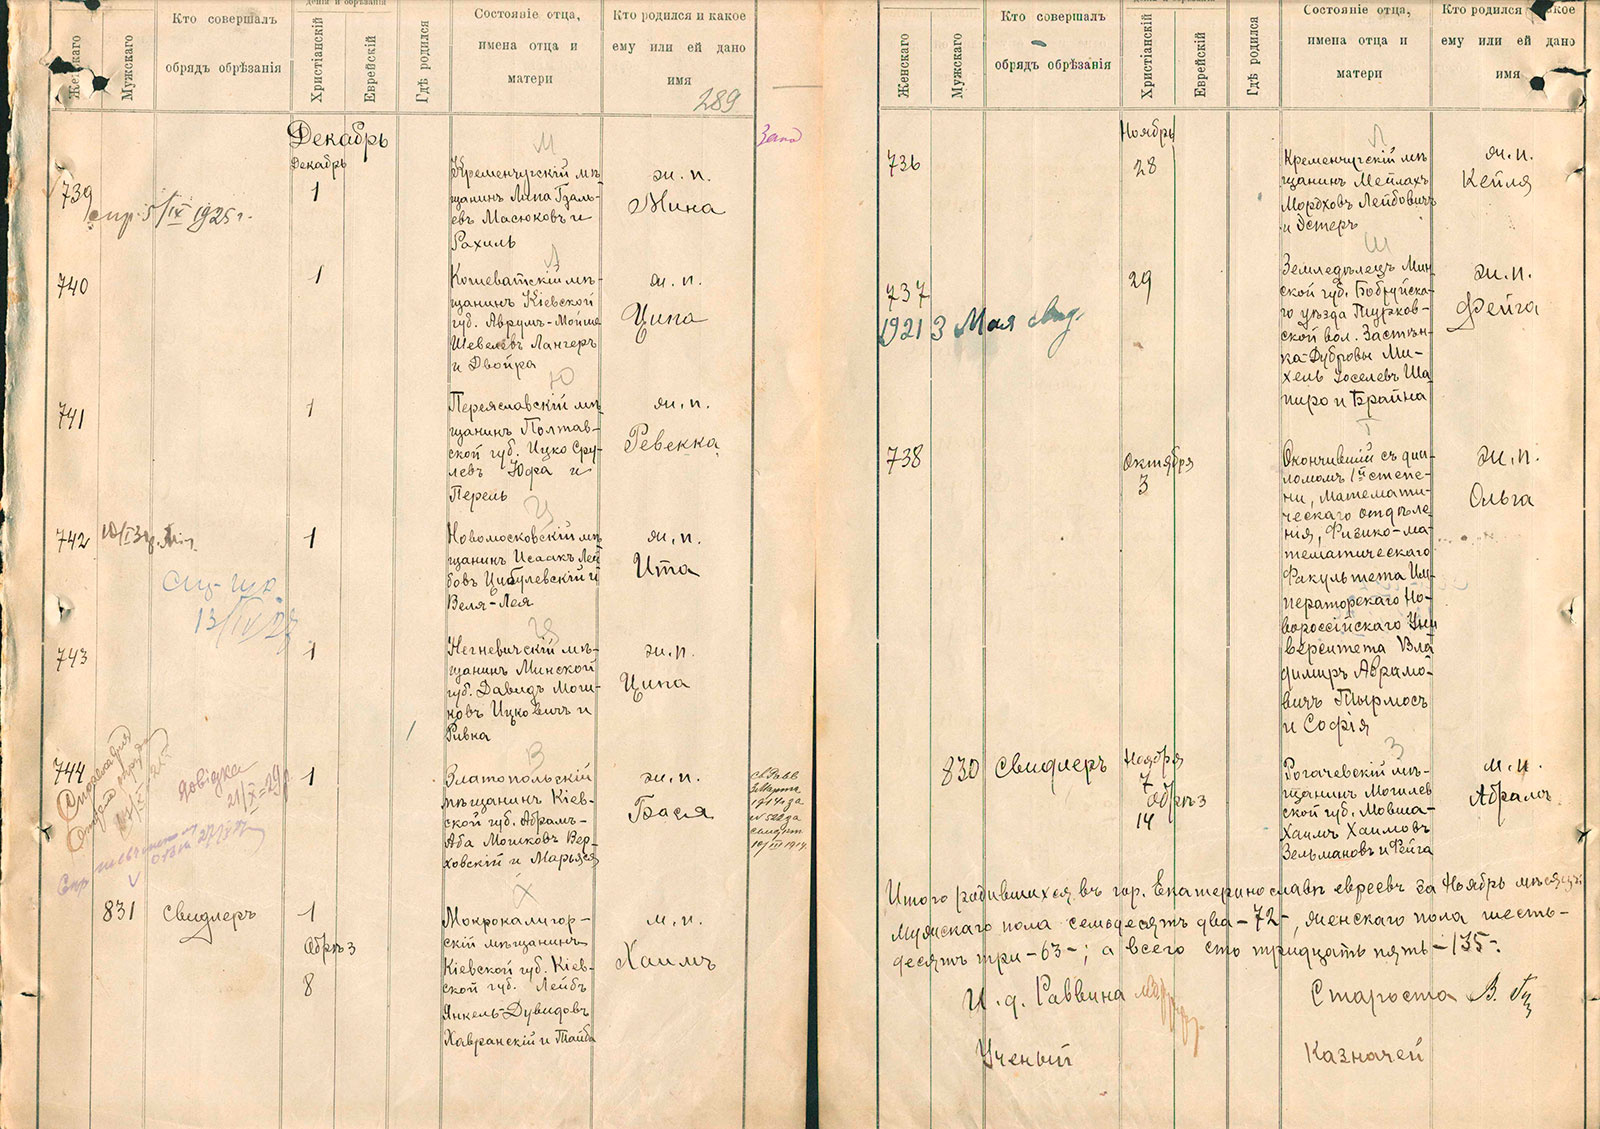 Женскаго
Мужскаго
Кто совершалъ
обрядъ обрѣзанія
Христіанскій
Еврейскій
Гдѣ родился
Состояніе отца,
имена отца и
матери
Кто родился и какое
ему или ей дано
имя
289
Декабрь
Декабрь
739
спр. 5/IX 1925 г.
1
М
Кременчугскій мѣ-
щанинъ Липа Гдаль-
евъ Масюковъ и
Рахиль
ж. п.
Мина
740
1
Л
Кошеватскій мѣ-
щанинъ Кіевской
губ. Аврумъ-Мойше
Шевелевъ Лангеръ
и Двойра
ж. п.
Ципа
741
1
Ю
Переяславскій мѣ-
щанинъ Полтав-
ской губ. Ицко Сру-
левъ Юфа и
Перель
ж. п.
Ревекка
742
1
Ц
Новомосковскій мѣ-
щанинъ Исаакъ Лей-
бовъ Цибулевскій и
Веля-Лея
ж. п.
Ита
13/IV
743
1
Негневичскій мѣ-
щанинъ Минской
губ. Давидъ Мош-
ковъ Ицковичъ и
Ривка
ж. п.
Ципа
744
довідка
21/X=29р
1
В
Златопольскій
мѣщанинъ Кіев-
ской губ. Абрамъ-
Аба Мошковъ Вер-
ховскій и Марьяся
ж. п.
Бася
831
Свидлеръ
1
Обрѣз
8
Х
Мокрокалигор-
скій мѣщанинъ
Кіевской губ. Кіев-
ской губ. Лейбъ
Янкель-Дувидовъ
Хавранскій и Тайба
м. п.
Хаимъ
Женскаго
Мужскаго
Кто совершалъ
обрядъ обрѣзанія
Христіанскій
Еврейскій
Гдѣ родился
Состояніе отца,
имена отца и
матери
Кто родился и какое
ему или ей дано
имя
Ноябрь
736
28
Л
Кременчугскій мѣ-
щанинъ Мейлахъ
Мордховъ Лейбовичъ
и Эстеръ
ж. п.
Кейля
737
1921 3 Мая свид.
29
Ш
Земледѣлецъ Мин-
ской губ. Бобруйска-
го уѣзда Турков-
ской вол. Застѣн-
ка-Дубровы Ми-
хель Іоселевъ Ша-
пиро и Брайна
ж. п.
Фейга
738
Октября
3
Т
Окончившій съ дип-
ломомъ 1й степе-
ни, Математи-
ческаго отдѣле-
нія, Физико-ма-
тематическаго
Факультета Им-
ператорскаго Но-
вороссійскаго Уни
верситета Вла
димиръ Абрамо-
вичъ Тырмосъ
и Софія
ж. п.
Ольга
830
Свидлеръ
Ноября
7
Обрѣз
14
З
Рогачевскій мѣ-
щанинъ Могилев
ской губ. Мовша-
Хаимъ Хаимовъ
Зельмановъ и Фейга
м. п.
Абрамъ
Итого родившихся въ гор. Екатеринославѣ евреевъ за Ноябрь мѣсяцъ:
Мужскаго пола семьдесятъ два -72-, женскаго пола шесть-
десятъ три -63-; а всего сто тридцать пять -135-.
И. д. Раввина
Староста
Ученый
Казначей